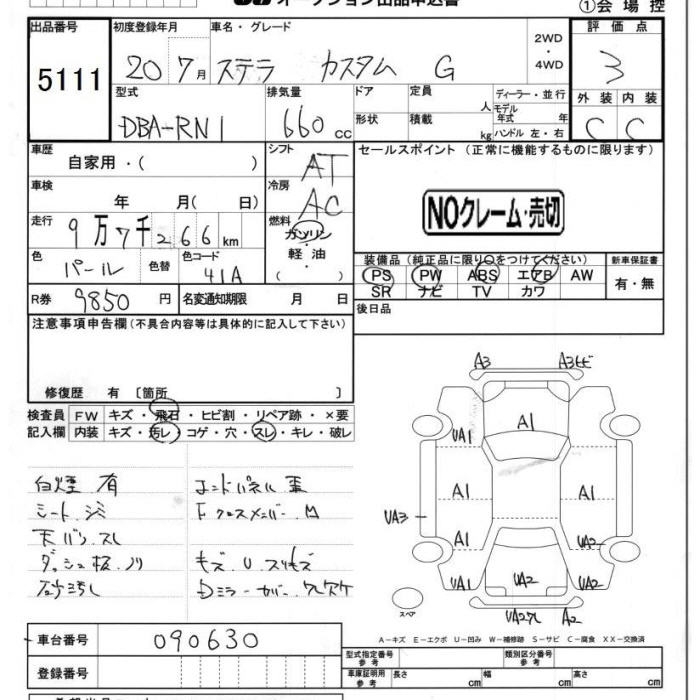 オークション出品申込書
①会場控
出品番号 初度登録年月 車名・グレード 評価点
5111 20 7月 ステラ カスタム G 2WD・4WD 3
型式 排気量 ドア 定員 ディーラー・並行 外装 内装
DBA-RN1 660cc 形状 積載 人 kg モデル年式 年 ハンドル 左・右 C C
車歴 シフト セールスポイント (正常に機能するものに限ります)
自家用・( ) AT
車検 冷房
年 月( 日) AC
NOクレーム・売切
走行 燃料
9万7千266km ガソリン・軽油( )
色 色替 色コード 装備品(純正品に限り○をつけてください) 新車保証書
パール 41A PS PW ABS エアB AW 有・無
SR ナビ TV カワ
R券 9850円 名変通知期限 月 日 後日品
注意事項申告欄(不具合内容等は具体的に記入して下さい)
修復歴 有 〔箇所 〕
検査員 FW キズ・飛石・ヒビ割・リペア跡・×要
記入欄 内装 キズ・汚レ・コゲ・穴・スレ・キレ・破レ
白煙.有 コンドパネル 歪
シート.ジミ F クロスメンバー.M
天バリ.スレ
ダッシュ板.ノリ キズ.U.スリキズ
Dミラーカバー.ワレカケ
A3 A3ヒビ
A1
UA1 A1
A1 A1
UA3
A1 UA2
UA1 UA2 UA2
スペア
UA2ワレ A2
A-キズ E-エクボ U-凹み W-補修跡 S-サビ C-腐食 XX-交換済
車台番号 090630
登録番号
型式指定番号 参考 類別区分番号 参考
車庫証明用 参考 長さ cm 幅 cm 高さ cm